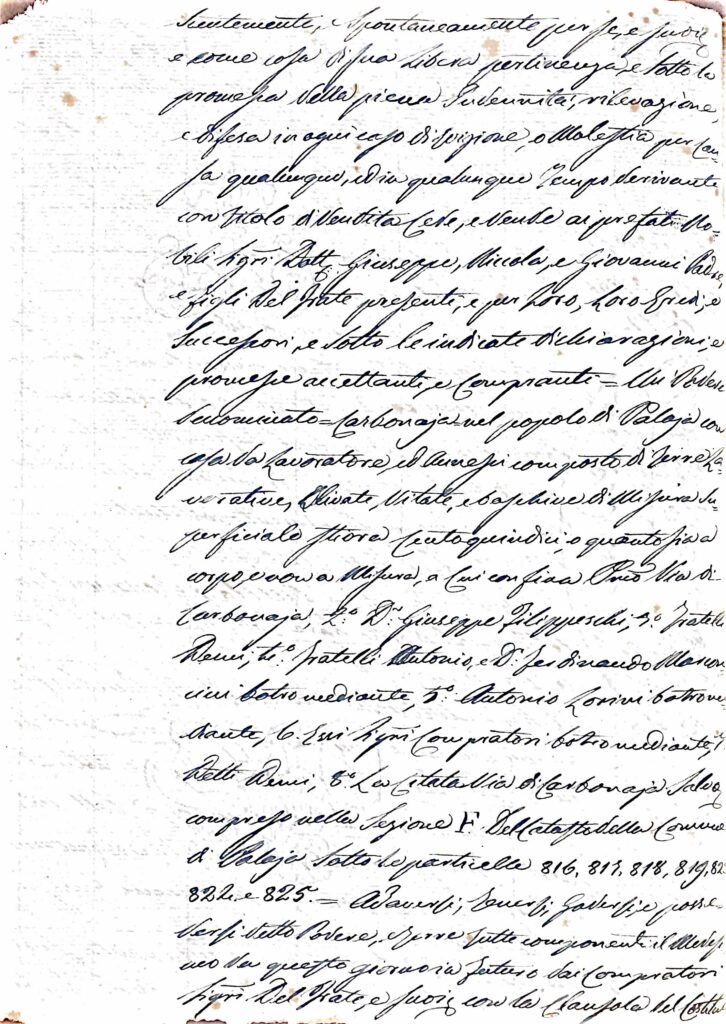 scientemente, e spontaneamente per se, e suoi
e come cosa di sua libera pertinenza, e sotto la
promessa della piena Indennità, rilevazione,
e difesa in ogni caso di evizione, o Molestia per Cau=
sa qualunque, ed in qualunque Tempo derivante
con titolo di Vendita Cede, e Vende ai prefati No=
bili Sigri Dott. Giuseppe, Niccola, e Giovanni Padre,
e figli Del Frate presenti, e per Loro, Loro Eredi, e
Successori, e sotto le indicate dichiarazioni, e
promesse accettanti, e Compranti = Un Podere
Denominato = Carbonaja = nel popolo di Palaja con
casa da Lavoratore, ed Annessi composto di Terre La=
vorative, Olivate, Vitate, e boschive di Misura Su=
perficiale stiora Centoquindici, o quanto sia a
corpo, e non a Misura, a Cui confina Pmo Via di
Carbonaja, 2.o Dr. Giuseppe Filippeschi, 3.o Fratelli
Demi, 4.o Fratelli Antonio, e Dr. Ferdinando Marcon
cini botro mediante, 5.o Antonio Lorini botro me
diante, 6. Essi Sigri Compratori botro mediante, 7
Detti Demi, 8.o La Citata Via di Carbonaja Salvo
compreso nella Sezione F. Del Catasto della Comune
di Palaja sotto le particelle 816, 817, 818, 819, 82
822. e 825. = Ad aversi, Tenersi, Godersi, e posse
dersi detto Podere, e Terre tutte componenti il Medesi
mo da questo giorno in futuro dai Compratori
Sigri Del Frate, e suoi con la Clausola del Costitu